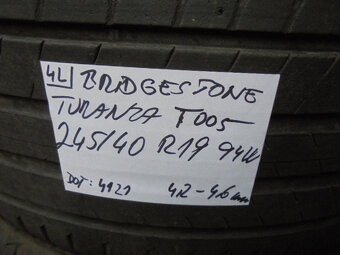 4L BRIDGESTONE
TURANZA T005
245/40 R19 94W
DOT: 4121 4,2-4,6mm